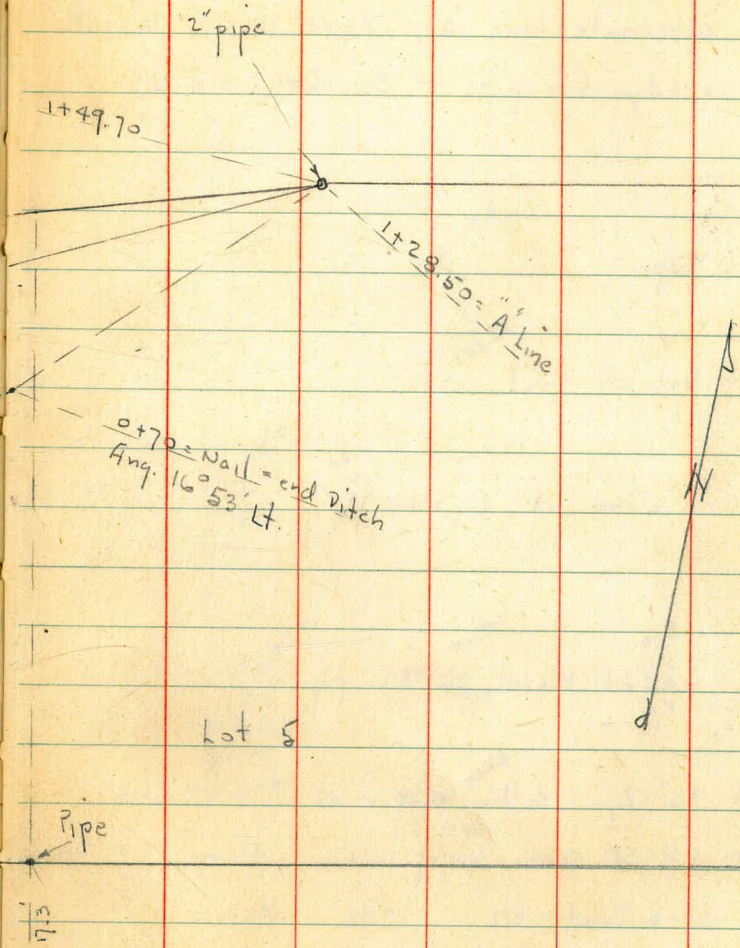 2" pipe
1+49.70
1+28.50 = "A" Line
0+70 = Nail = end Ditch
Ang. 16° 53' Lt.
N
Lot 5
Pipe
17.3'